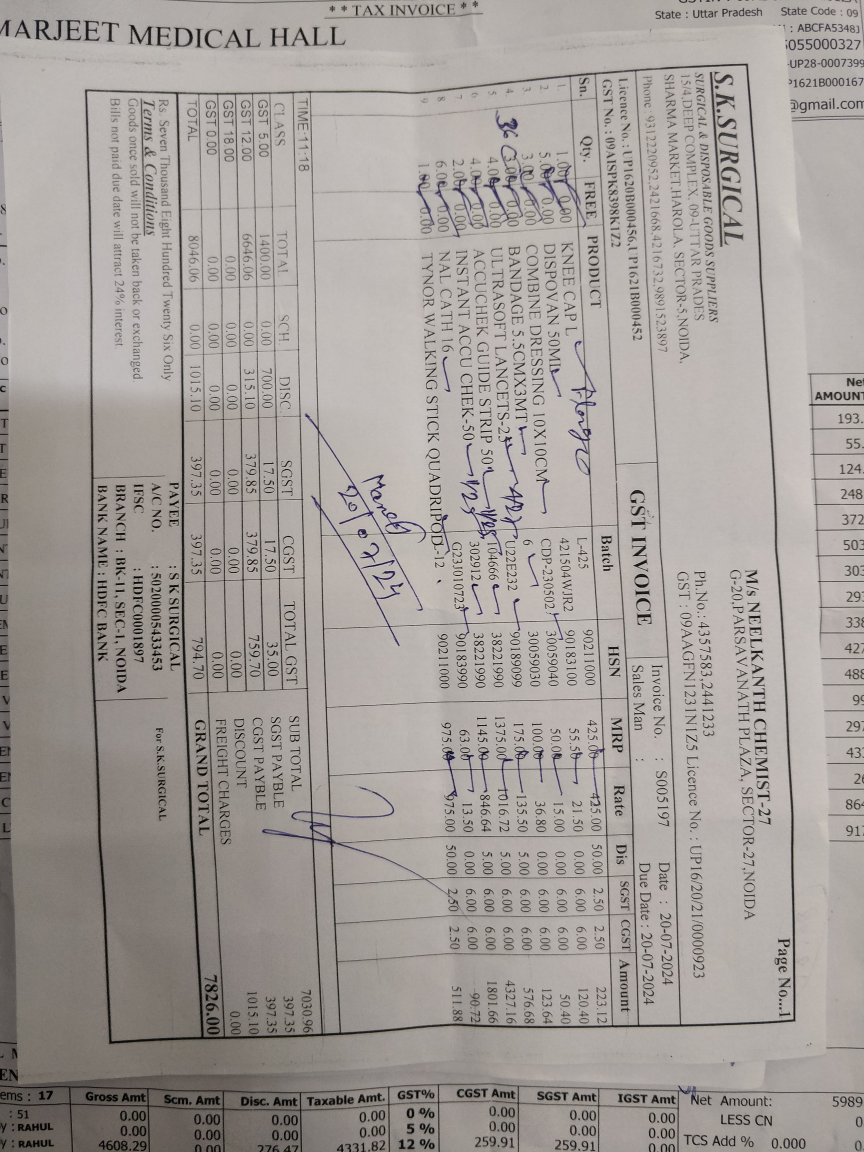 ** TAX INVOICE **
MARJEET MEDICAL HALL
State : Uttar Pradesh State Code : 09
: ABCFA5348J
5055000327
-UP28-0007399
P1621B000167
@gmail.com
Page No...1
S.K.SURGICAL
SURGICAL & DISPOSABLE GOODS SUPPLIERS
15/4,DEEP COMPLEX, 09-UTTAR PRADES
SHARMA MARKET,HAROLA, SECTOR-5,NOIDA,
Phone : 9312220952,2421668,4216732,9891523897
M/s NEELKANTH CHEMIST-27
G-20,PARSAVANATH PLAZA, SECTOR-27,NOIDA
Ph.No.: 4357583,2441233
GST : 09AAGFN1231N1Z5 Licence No.: UP16/20/21/0000923
Licence No.: UP1620B000456,UP1621B000452
GST No.: 09AISPK8398K1Z2
GST INVOICE
Invoice No. : S005197 Date : 20-07-2024
Sales Man : Due Date : 20-07-2024
Sn. Qty. FREE PRODUCT Batch HSN MRP Rate Dis SGST CGST Amount
1. 1.00 0.00 KNEE CAP L L-425 90211000 425.00 425.00 50.00 2.50 2.50 223.12
2 5.00 0.00 DISPOVAN 50ML 421504WJR2 90183100 55.50 21.50 0.00 6.00 6.00 120.40
3 3.00 0.00 COMBINE DRESSING 10X10CM CDP-230502 30059040 50.00 15.00 0.00 6.00 6.00 50.40
4. 36 3.00 0.00 BANDAGE 5.5CMX3MT 6 30059030 100.00 36.80 0.00 6.00 6.00 123.64
5 4.00 0.00 ULTRASOFT LANCETS-25 U22E232 90189099 175.00 135.50 5.00 6.00 6.00 576.68
6 4.00 0.00 ACCUCHEK GUIDE STRIP 50 104666 38221990 1375.00 1016.72 5.00 6.00 6.00 4327.16
7 2.00 0.00 INSTANT ACCU CHEK-50 302912 38221990 1145.00 846.64 5.00 6.00 6.00 1801.66
8 6.00 0.00 NAL CATH 16 G23J010723 90183990 63.00 13.50 0.00 6.00 6.00 90.72
9 1.00 0.00 TYNOR WALKING STICK QUADRIPOD L-12 90211000 975.00 975.00 50.00 2.50 2.50 511.88
20/07/24
TIME:11:18
CLASS TOTAL SCH DISC. SGST CGST TOTAL GST
GST 5.00 1400.00 0.00 700.00 17.50 17.50 35.00
GST 12.00 6646.06 0.00 315.10 379.85 379.85 759.70
GST 18.00 0.00 0.00 0.00 0.00 0.00 0.00
GST 0.00 0.00 0.00 0.00 0.00 0.00 0.00
TOTAL 8046.06 0.00 1015.10 397.35 397.35 794.70
SUB TOTAL 7030.96
SGST PAYBLE 397.35
CGST PAYBLE 397.35
DISCOUNT 1015.10
FREIGHT CHARGES 0.00
GRAND TOTAL 7826.00
Rs Seven Thousand Eight Hundred Twenty Six Only
Terms & Conditions
Goods once sold will not be taken back or exchanged.
Bills not paid due date will attract 24% interest
PAYEE : S K SURGICAL
A/C NO. : 50200005433453
IFSC : HDFC0001897
BRANCH : BK-11, SEC-1, NOIDA
BANK NAME : HDFC BANK
For S.K.SURGICAL
Net
AMOUNT
193.
55.
124.
248
372
503
303
293
338
427
488
99
297
433
26
864
917
ems : 17 Gross Amt Scm. Amt Disc. Amt Taxable Amt. GST% CGST Amt SGST Amt IGST Amt Net Amount: 5989
: 51 0.00 0.00 0.00 0.00 0 % 0.00 0.00 0.00 LESS CN 0
y : RAHUL 0.00 0.00 0.00 0.00 5 % 0.00 0.00 0.00
y : RAHUL 4608.29 0.00 276.47 4331.82 12 % 259.91 259.91 0.00 TCS Add % 0.000 0